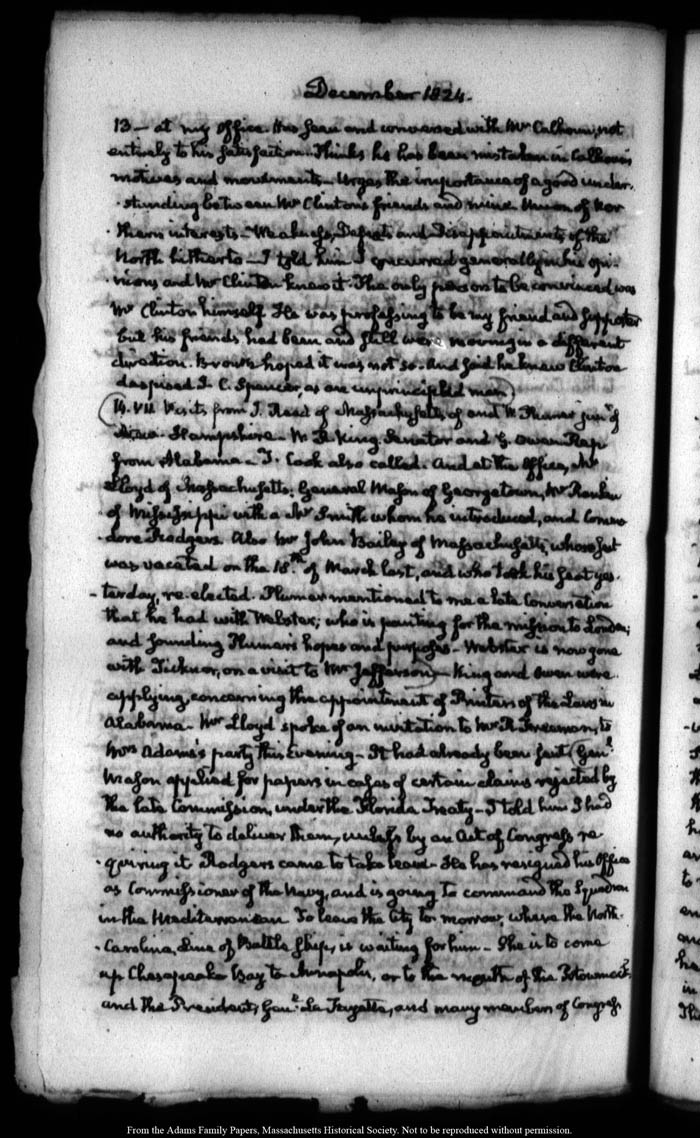 December 1824.
13 — at my Office. Has seen and conversed with Mr Calhoun, not
entirely to his satisfaction. Thinks he has been mistaken in Calhoun's
motives and movements — Urges the importance of a good under-
-standing between Mr Clinton's friends and mine. Union of Nor
-thern interests — Weakness, Defeats and Disappointments of the
North hitherto — I told him I concurred generally in his opi-
-nions and Mr Clinton knew it. The only person to be convinced was
Mr Clinton himself. He was professing to be my friend and supporter
but his friends had been and still were moving in a different
direction. Brown hoped it was not so. And said he knew Clinton
despised J. C. Spencer, as an unprincipled man)
(14. VII. Visits from J. Reed of Massachusetts, of and W. Plumer junr of
New-Hampshire — W. R. King Senator and G. Owen Rep
from Alabama — J. Cook also called. And at the Office, Mr
Lloyd of Massachusetts; General Mason of Georgetown, Mr Rankin
of Mississippi with a Mr Smith whom he introduced, and Commo
-dore Rodgers. Also Mr John Bailey of Massachusetts, whose seat
was vacated on the 18th of March last, and who took his seat yes-
-terday, re-elected. Plumer mentioned to me a late Conversation
that he had with Webster; who is panting for the mission to London;
and sounding Plumer's hopes and purposes — Webster is now gone
with Ticknor, on a visit to Mr Jefferson — King and Owen were
applying, concerning the appointment of Printers of the Laws in
Alabama — Mr Lloyd spoke of an invitation to Mr R. Freeman, to
Mrs Adams's party this Evening — It had already been sent. Genl
Mason applied for papers in cases of certain claims rejected by
the late Commission, under the Florida Treaty — I told him I had
no authority to deliver them, unless by an Act of Congress re
-quiring it. Rodgers came to take leave. He has resigned his Office
as Commissioner of the Navy, and is going to command the Squadron
in the Mediterranean. To leave the City to-morrow, where the North-
-Carolina, Line of Battle Ship, is waiting for him — She is to come
up Chesapeake Bay to Annapolis, or to the mouth of the Potowmack,
and the President, Genl La Fayette, and many members of Congress
From the Adams Family Papers, Massachusetts Historical Society. Not to be reproduced without permission.